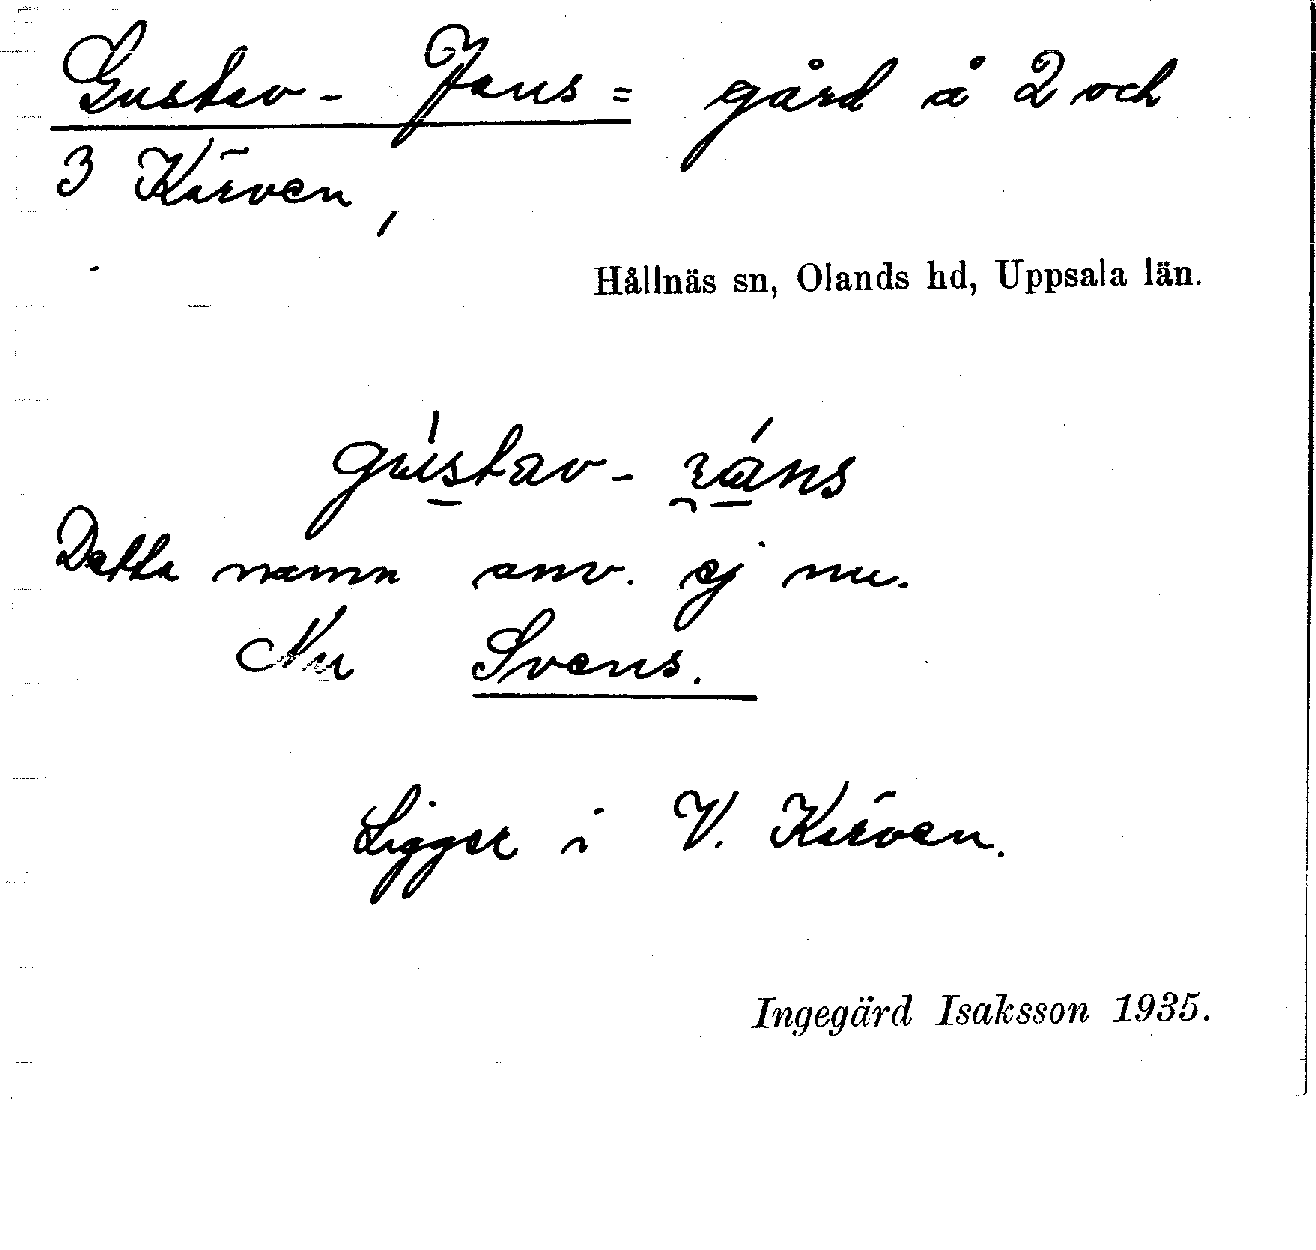 Gustav-Jans= gård å 2 och
3 Kärven,
Hållnäs sn, Olands hd, Uppsala län.
gústav-
Detta namn anv. ej nu.
Nu Svens.
Ligger i V. Kärven.
Ingegärd Isaksson 1935.